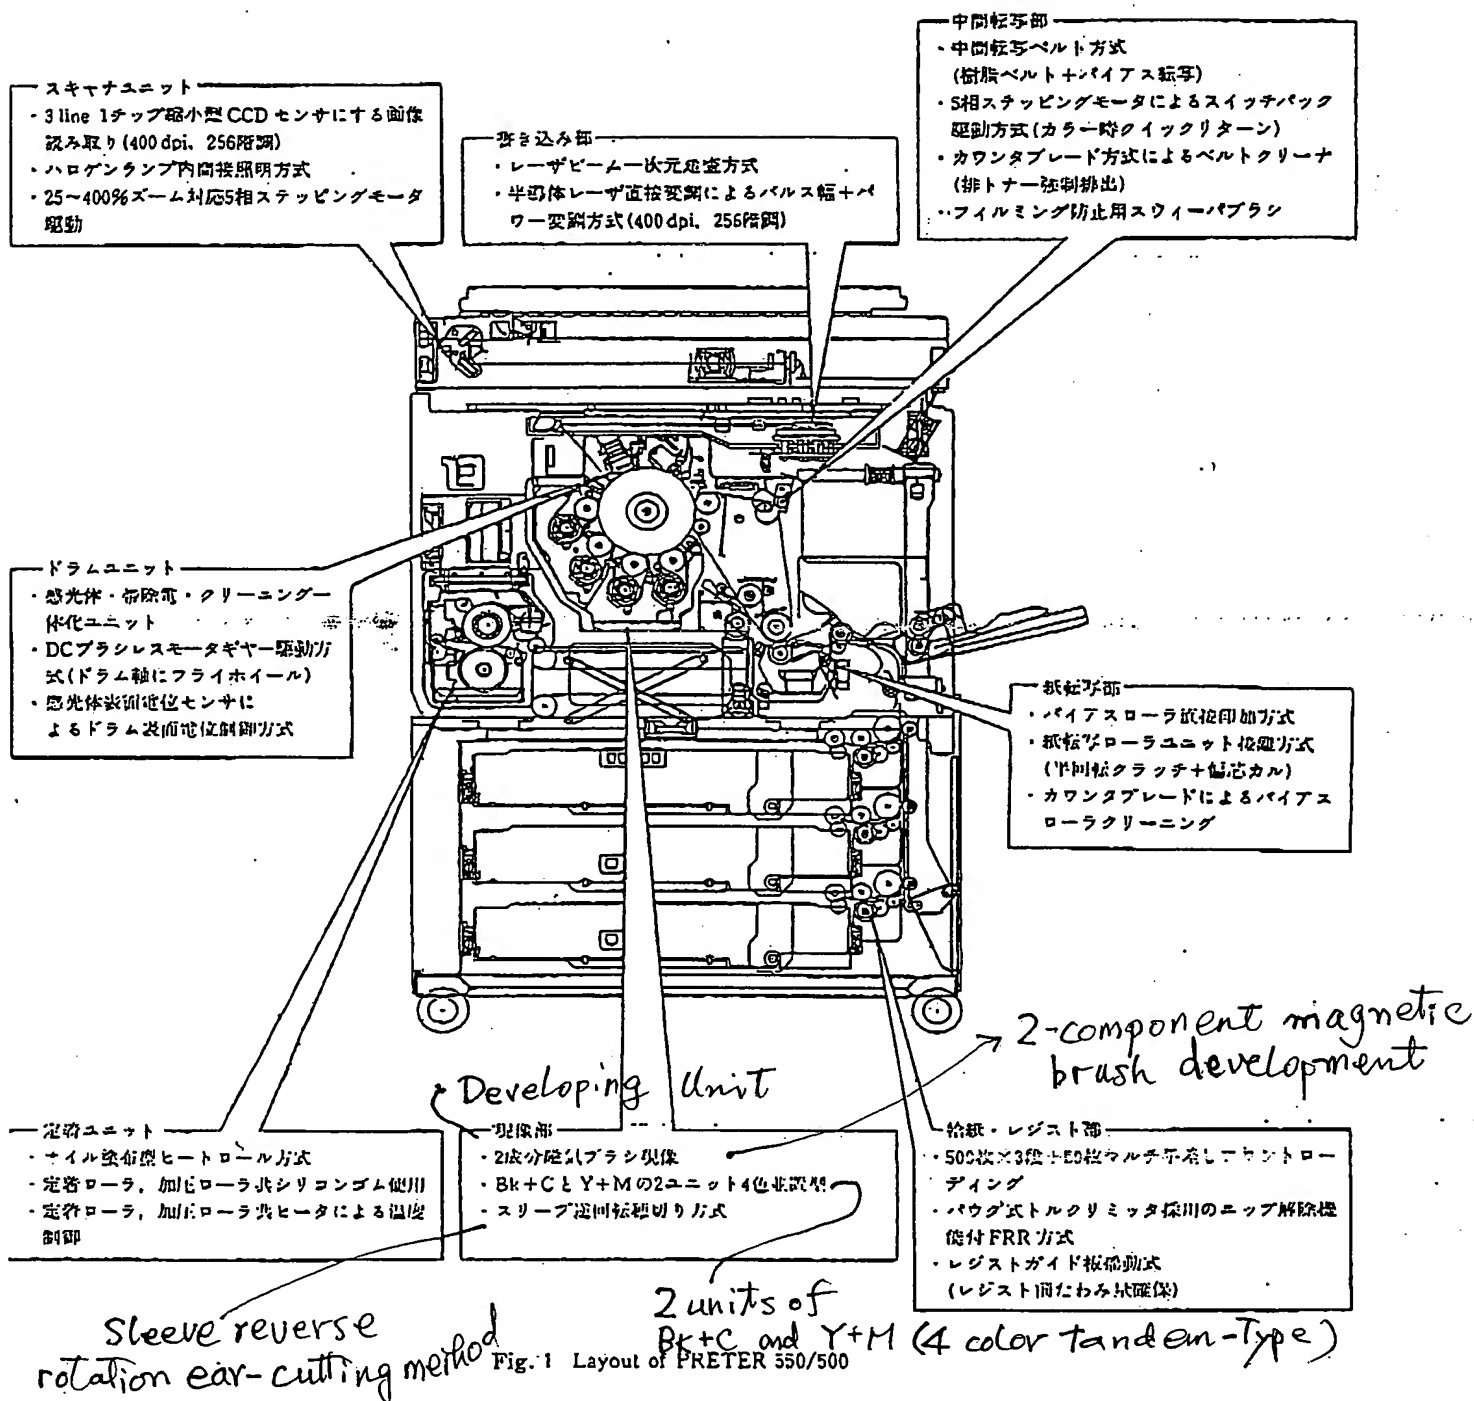 スキャナユニット
・3 line 1チップ縮小型 CCD センサにする画像
読み取り(400 dpi, 256階調)
・ハロゲンランプ内間接照明方式
・25~400%ズーム対応5相ステッピングモータ
駆動
書き込み部
・レーザビーム一次元走査方式
・半導体レーザ直接変調によるパルス幅+パ
ワー変調方式(400 dpi, 256階調)
中間転写部
・中間転写ベルト方式
(樹脂ベルト+バイアス転写)
・5相ステッピングモータによるスイッチバック
駆動方式(カラー時クイックリターン)
・カウンタブレード方式によるベルトクリーナ
(排トナー強制排出)
・フィルミング防止用スウィーパブラシ
ドラムユニット
・感光体・帯除電・クリーニング一
体化ユニット
・DCブラシレスモータギヤー駆動方
式(ドラム軸にフライホイール)
・感光体表面電位センサに
よるドラム表面電位制御方式
紙転写部
・バイアスローラ直接印加方式
・紙転写ローラユニット接離方式
(半回転クラッチ+偏芯カル)
・カウンタブレードによるバイアス
ローラクリーニング
2-component magnetic
brush development
Developing Unit
定着ユニット
・オイル塗布型ヒートロール方式
・定着ローラ, 加圧ローラ共シリコンゴム使用
・定着ローラ, 加圧ローラ共ヒータによる温度
制御
現像部
・2成分磁気ブラシ現像
・Bk+CとY+Mの2ユニット4色並設型
・スリーブ逆回転穂切り方式
給紙・レジスト部
・500枚×3段+50枚マルチ手差しフロントロー
ディング
・バウグ式トルクリミッタ採用のニップ解除機
能付FRR方式
・レジストガイド板揺動式
(レジスト前たわみ量確保)
Sleeve reverse
rotation ear-cutting method
2 units of
Bk+C and Y+M (4 color tandem-Type)
Fig. 1 Layout of PRETER 550/500